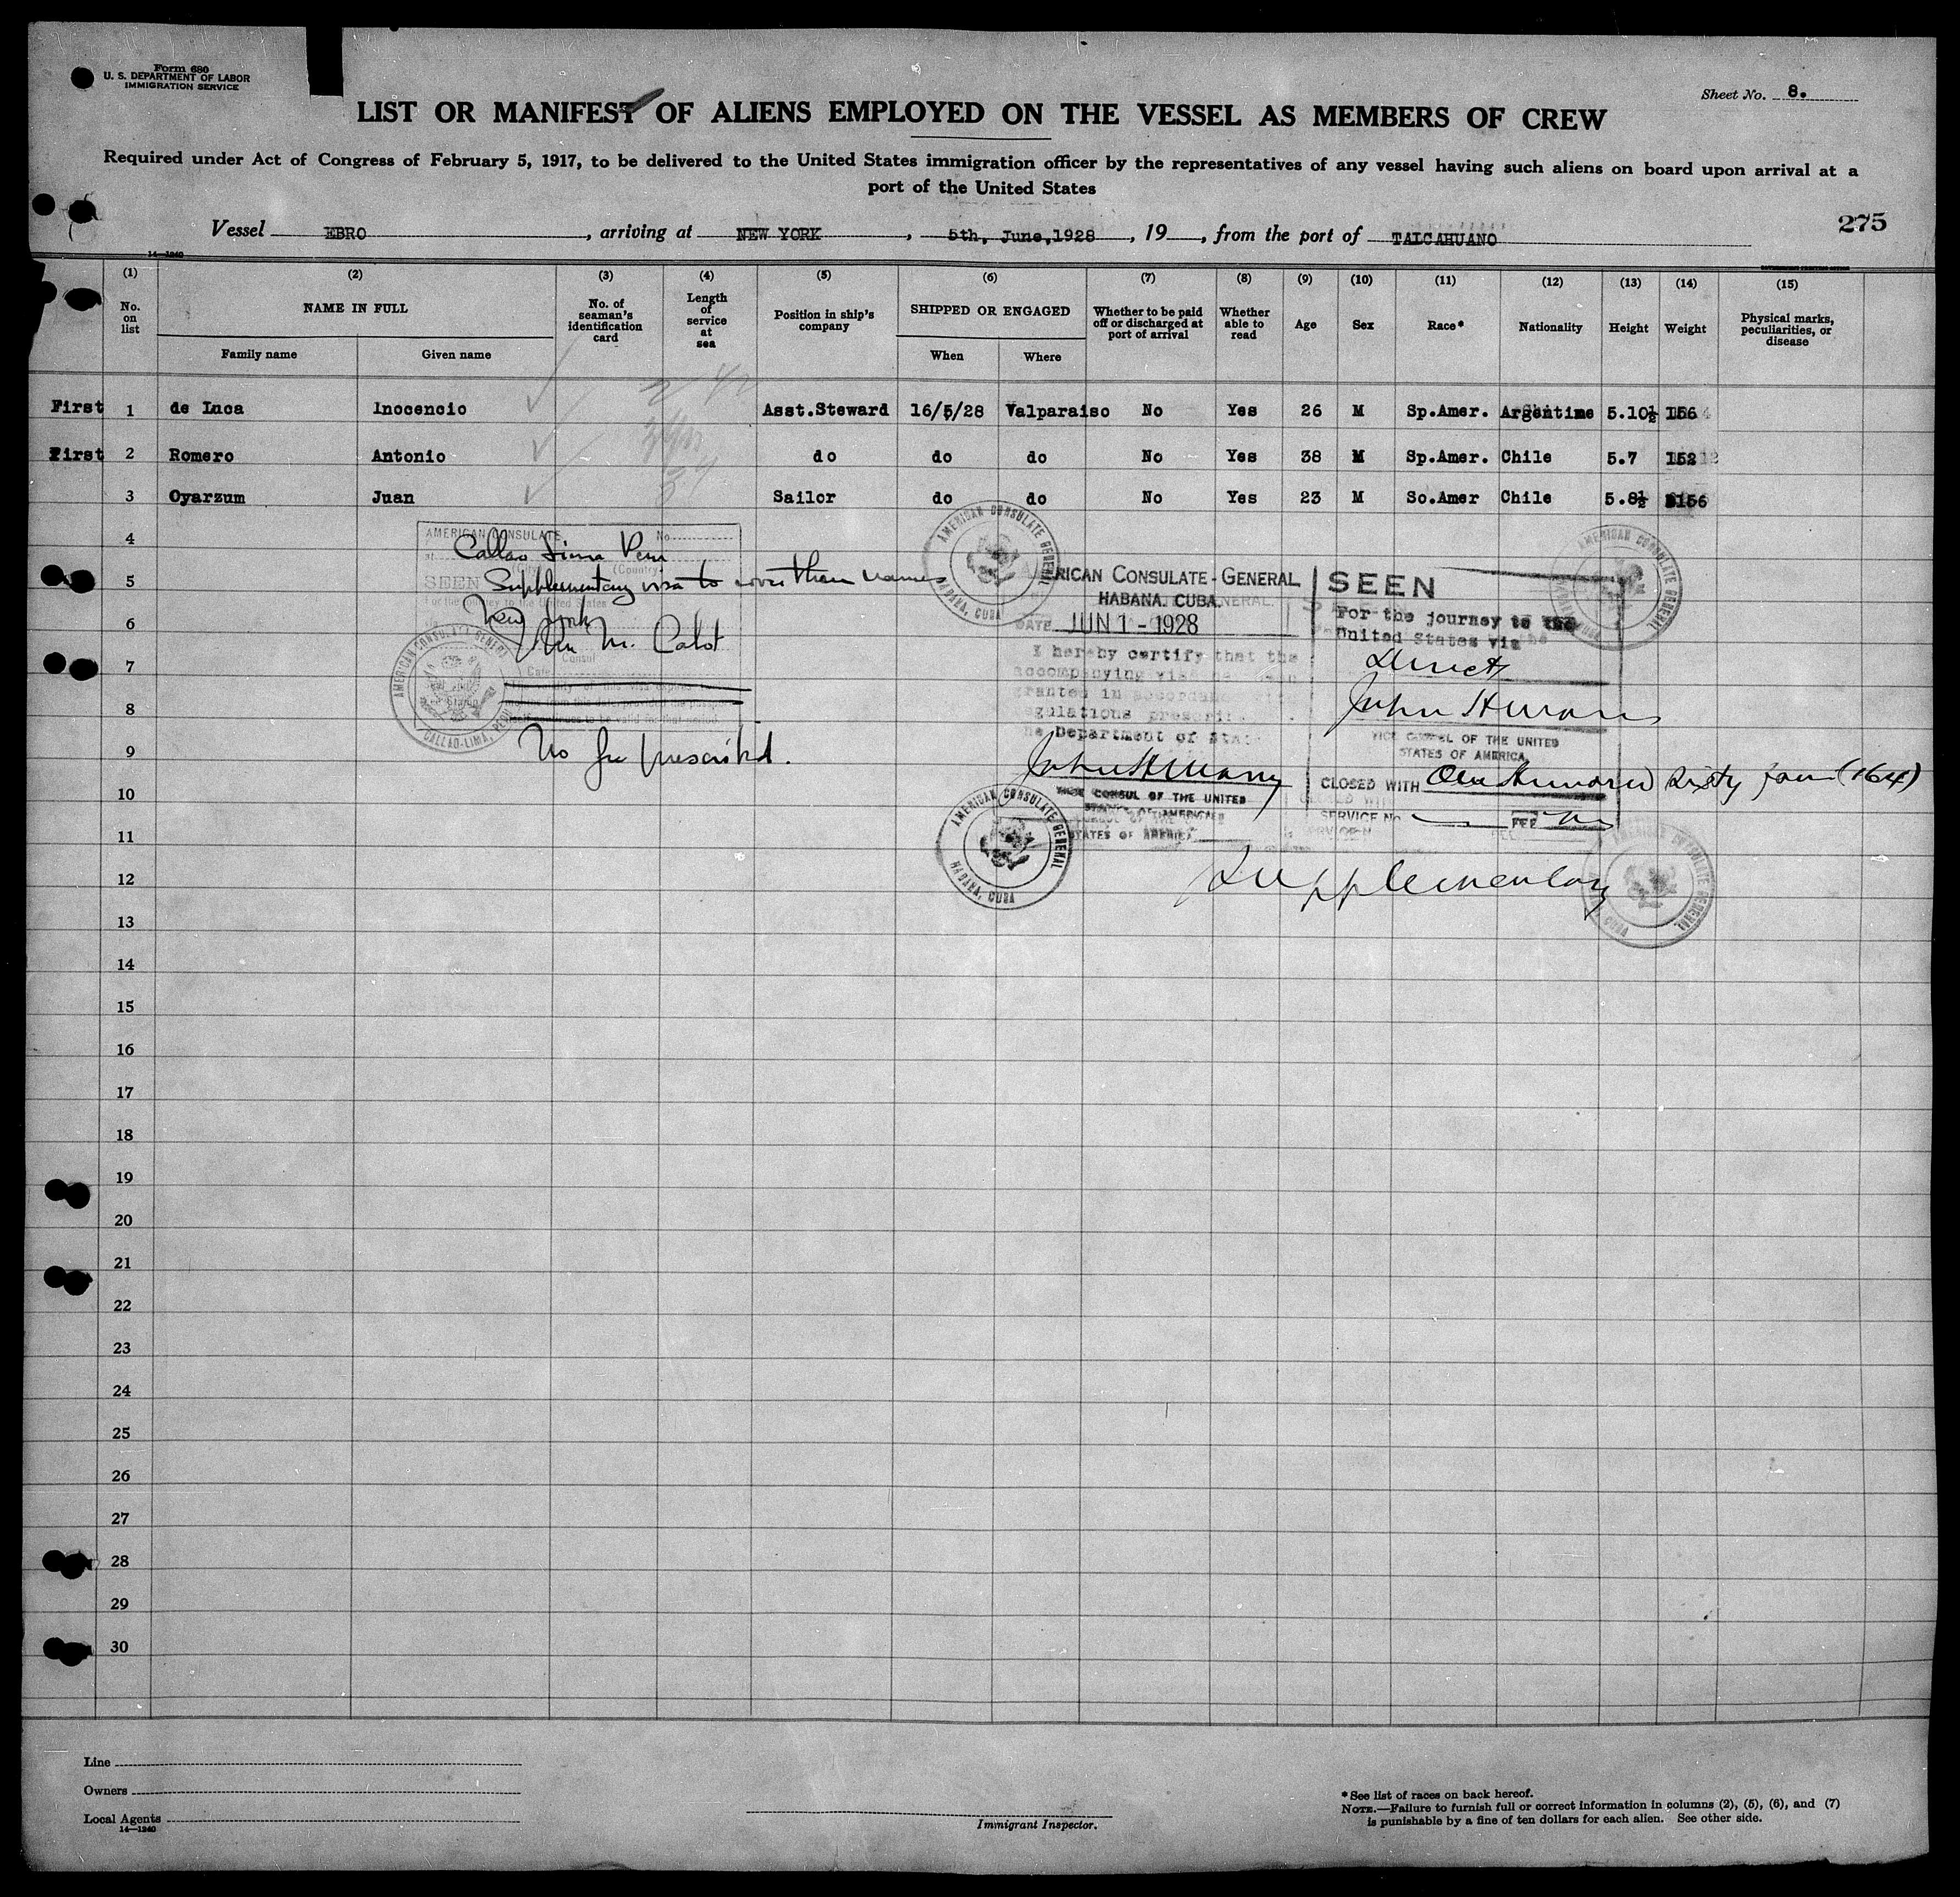 Form 680
U. S. DEPARTMENT OF LABOR
IMMIGRATION SERVICE
Sheet No. 8.
LIST OR MANIFEST OF ALIENS EMPLOYED ON THE VESSEL AS MEMBERS OF CREW
Required under Act of Congress of February 5, 1917, to be delivered to the United States immigration officer by the representatives of any vessel having such aliens on board upon arrival at a
port of the United States
Vessel EBRO, arriving at NEW YORK, 5th, June, 1928, 19, from the port of TALCAHUANO
275
14—1240
(1) (2) (3) (4) (5) (6) (7) (8) (9) (10) (11) (12) (13) (14) (15)
No. on list
NAME IN FULL
Family name Given name
No. of seaman's identification card
Length of service at sea
Position in ship's company
SHIPPED OR ENGAGED
When Where
Whether to be paid off or discharged at port of arrival
Whether able to read
Age
Sex
Race*
Nationality
Height
Weight
Physical marks, peculiarities, or disease
First 1 de Luca Inocencio Asst.Steward 16/5/28 Valparaiso No Yes 26 M Sp.Amer. Argentine 5.10½ 156
First 2 Romero Antonio do do do No Yes 38 M Sp.Amer. Chile 5.7 152
3 Oyarzum Juan Sailor do do No Yes 23 M So.Amer Chile 5.8½ 156
4
5
6
7
8
9
10
11
12
13
14
15
16
17
18
19
20
21
22
23
24
25
26
27
28
29
30
AMERICAN CONSULATE No.
at Callao Lima Peru
(City) (Country)
SEEN Supplementary visa to
For the journey to the United States
New York
Consul
AMERICAN CONSULATE GENERAL
CALLAO-LIMA, PERU
No fee prescribed.
AMERICAN CONSULATE GENERAL
HABANA, CUBA
AMERICAN CONSULATE-GENERAL
HABANA. CUBA.
DATE JUN 1 - 1928
I hereby certify that the
accompanying visa has been
granted in accordance with
regulations prescribed
the Department of State
VICE CONSUL OF THE UNITED
STATES OF AMERICA
AMERICAN CONSULATE GENERAL
HABANA, CUBA
SEEN
For the journey to the
United States via
Direct
VICE CONSUL OF THE UNITED
STATES OF AMERICA
CLOSED WITH One Hundred Sixty four (164)
SERVICE No. FEE No
Supplementary
AMERICAN CONSULATE GENERAL
AMERICAN CONSULATE GENERAL
Line
Owners
Local Agents
14—1240
Immigrant Inspector.
* See list of races on back hereof.
NOTE.—Failure to furnish full or correct information in columns (2), (5), (6), and (7)
is punishable by a fine of ten dollars for each alien. See other side.